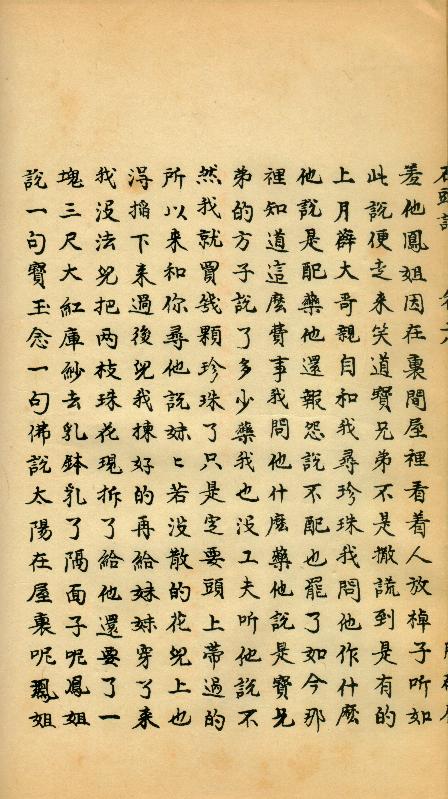 石頭記 卷六
羞他鳳姐因在裏間屋裡看着人放棹子聽如
此說便走来笑道寶兄弟不是撒謊到是有的
上月薛大哥親自和我尋珍珠我問他作什麽
他說是配藥他還報怨說不配也罷了如今那
裡知道這麽費事我問他什麽藥他說是寶兄
弟的方子說了多少藥我也没工夫听他說不
然我就買幾顆珍珠了只是定要頭上帶過的
所以来和你尋他說妹〻若没散的花兒上也
得掐下来過後兒我揀好的再給妹妹穿了来
我没法兒把两枝珠花現拆了給他還要了一
塊三尺大紅庫紗去乳鉢乳了隔面子呢鳳姐
說一句寶玉念一句佛說太陽在屋裏呢鳳姐